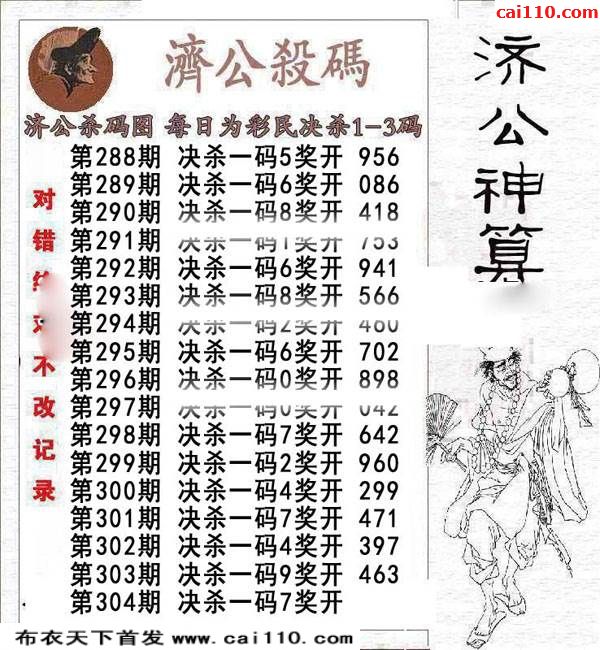 cai110.com
濟公殺碼
济公神算
济公杀码图 每日为彩民决杀1-3码
第288期 决杀一码5奖开 956
第289期 决杀一码6奖开 086
第290期 决杀一码8奖开 418
第291期 决杀一码1奖开 753
第292期 决杀一码6奖开 941
第293期 决杀一码8奖开 566
第294期 决杀一码2奖开 460
第295期 决杀一码6奖开 702
第296期 决杀一码0奖开 898
第297期 决杀一码0奖开 042
第298期 决杀一码7奖开 642
第299期 决杀一码2奖开 960
第300期 决杀一码4奖开 299
第301期 决杀一码7奖开 471
第302期 决杀一码4奖开 397
第303期 决杀一码9奖开 463
第304期 决杀一码7奖开
对错 不改记录
布衣天下首发 www.cai110.com